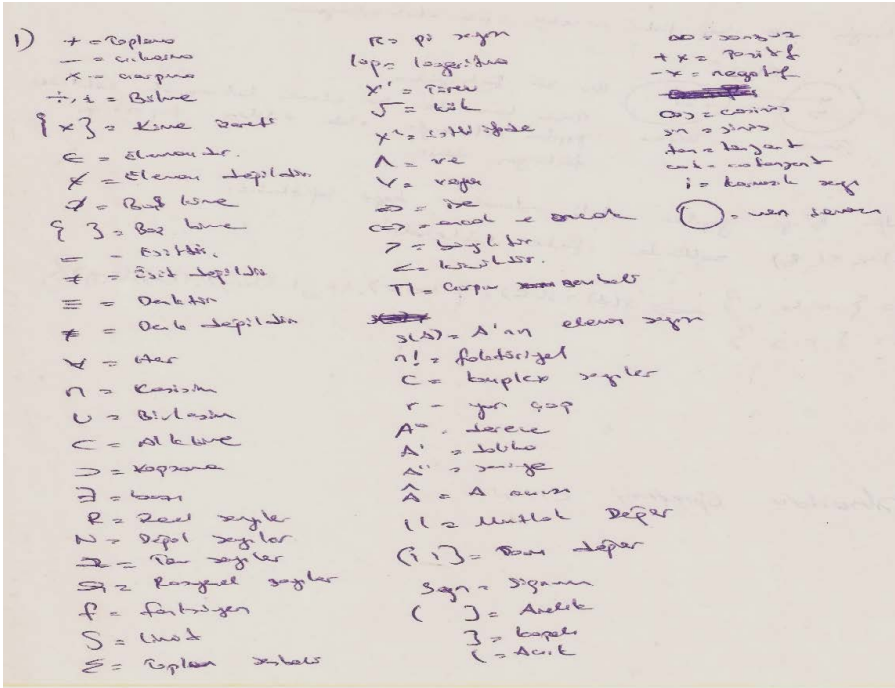 1)
+ = Toplama
- = çıkarma
× = çarpma
÷, ± = Bölme
{x} = Küme işareti
∈ = Elemanıdır.
∉ = Eleman değildir.
∅ = Boş küme
{ } = Boş küme
= = Eşittir.
≠ = Eşit değildir
≡ = Denktir
≢ = Denk değildir
∀ = Her
∩ = Kesişim
∪ = Birleşim
⊂ = Alt küme
⊃ = Kapsama
∃ = bazı
R = Reel sayılar
N = Doğal sayılar
Z = Tam sayılar
Q = Rasyonel sayılar
f = fonksiyon
S = Limit
Σ = Toplam sembolü
π = pi sayısı
log = logaritma
x' = Türev
√ = kök
x² = üslü ifade
∧ = ve
∨ = veya
⇒ = ise
⇔ = ancak e ancak
> = büyüktür
< = küçüktür.
Π = Çarpım sembolü
s(A) = A'nın eleman sayısı
n! = faktöriyel
C = kompleks sayılar
r = yarı çap
A° = derece
A' = dakika
A'' = saniye
Â = A açısı
| | = Mutlak Değer
[| |] = Tam değer
Sgn = Signum
( ] = Aralık
] = kapalı
( = Açık
∞ = sonsuz
+x = Pozitif
-x = negatif
cos = cosinüs
sin = sinüs
tan = tanjant
cot = cotanjant
i = karmaşık sayı
= ven şeması